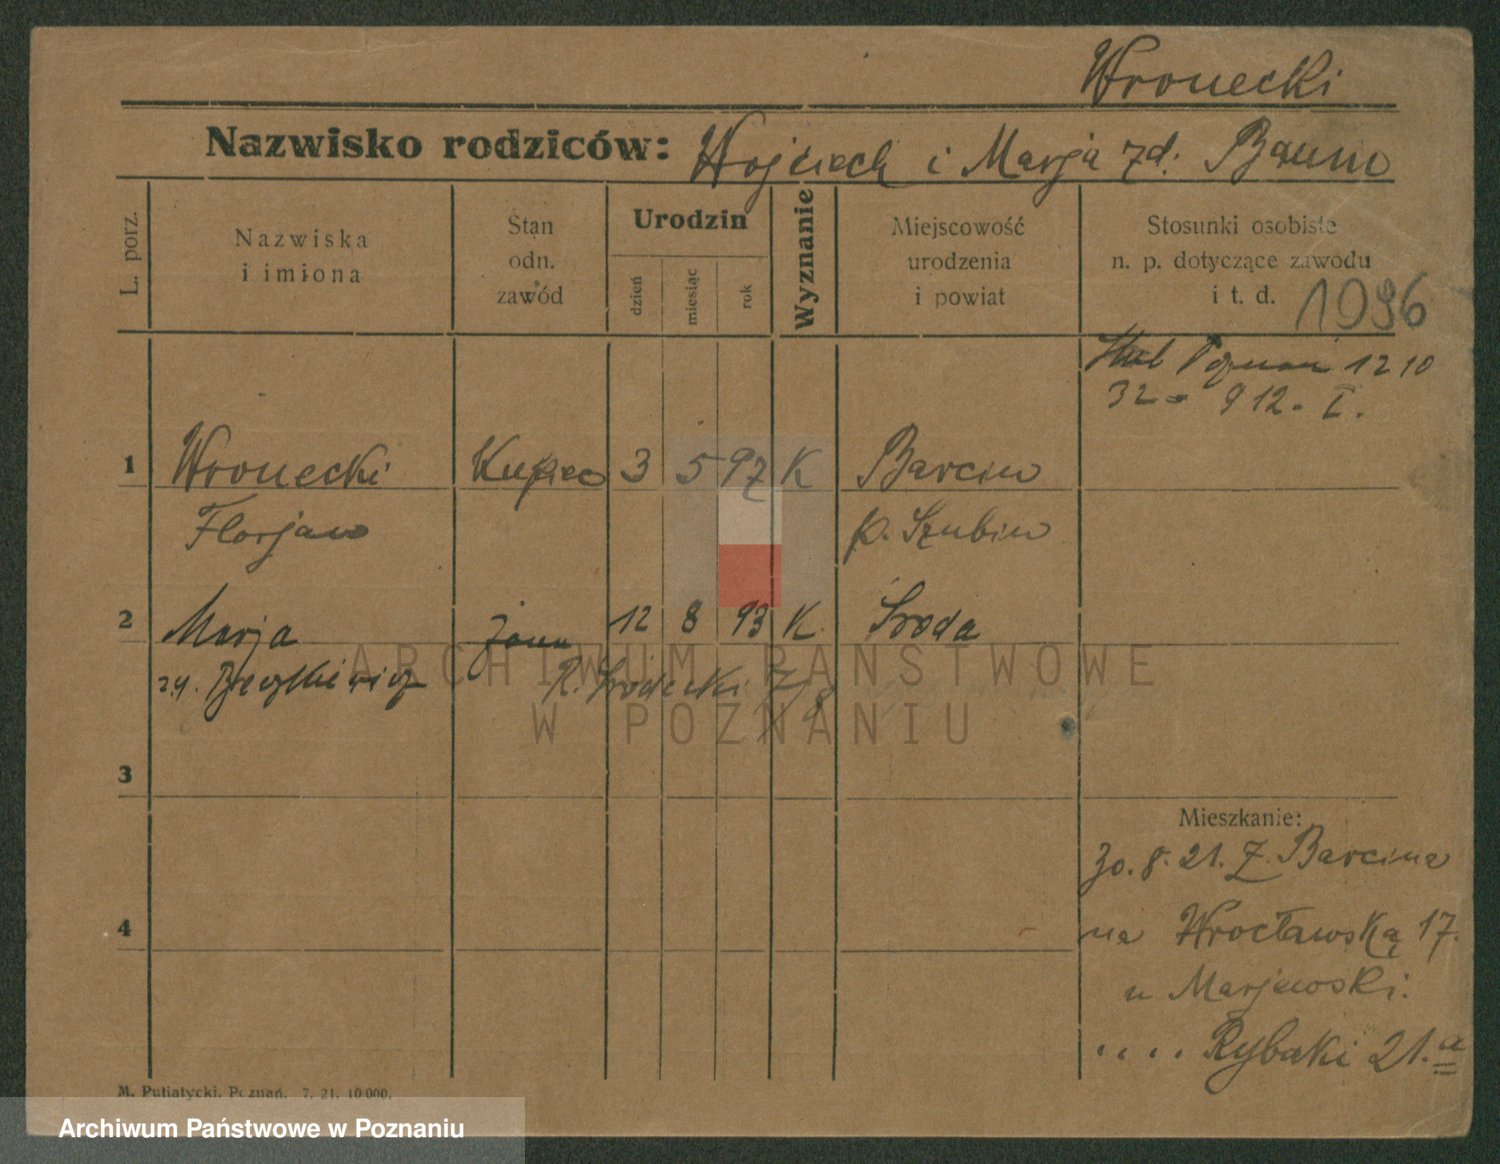 Wronecki
Nazwisko rodziców: Wojciech i Marja zd. Baum
L. porz.
Nazwiska
i imiona
Stan
odn.
zawód
Urodzin
dzień
miesiąc
rok
Wyznanie
Miejscowość
urodzenia
i powiat
Stosunki osobiste
n. p. dotyczące zawodu
i t. d.
1936
Poznań 12 10
32 = 912. I.
1 Wronecki Kupiec 3 5 97 K Barcin
Florjan p. Szubin
2 Marja żona 12 8 93 K. Środa
ARCHIWUM PAŃSTWOWE
W POZNANIU
3
Mieszkanie:
30. 8. 21. Z. Barcina
4
na Wrocławską 17.
u Marjewski.
.... Rybaki 21. a
M. Putiatycki, Poznań. 7. 21. 10000.
Archiwum Państwowe w Poznaniu